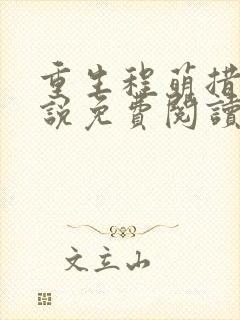 重生程萌措
說免費閱讀
文立山